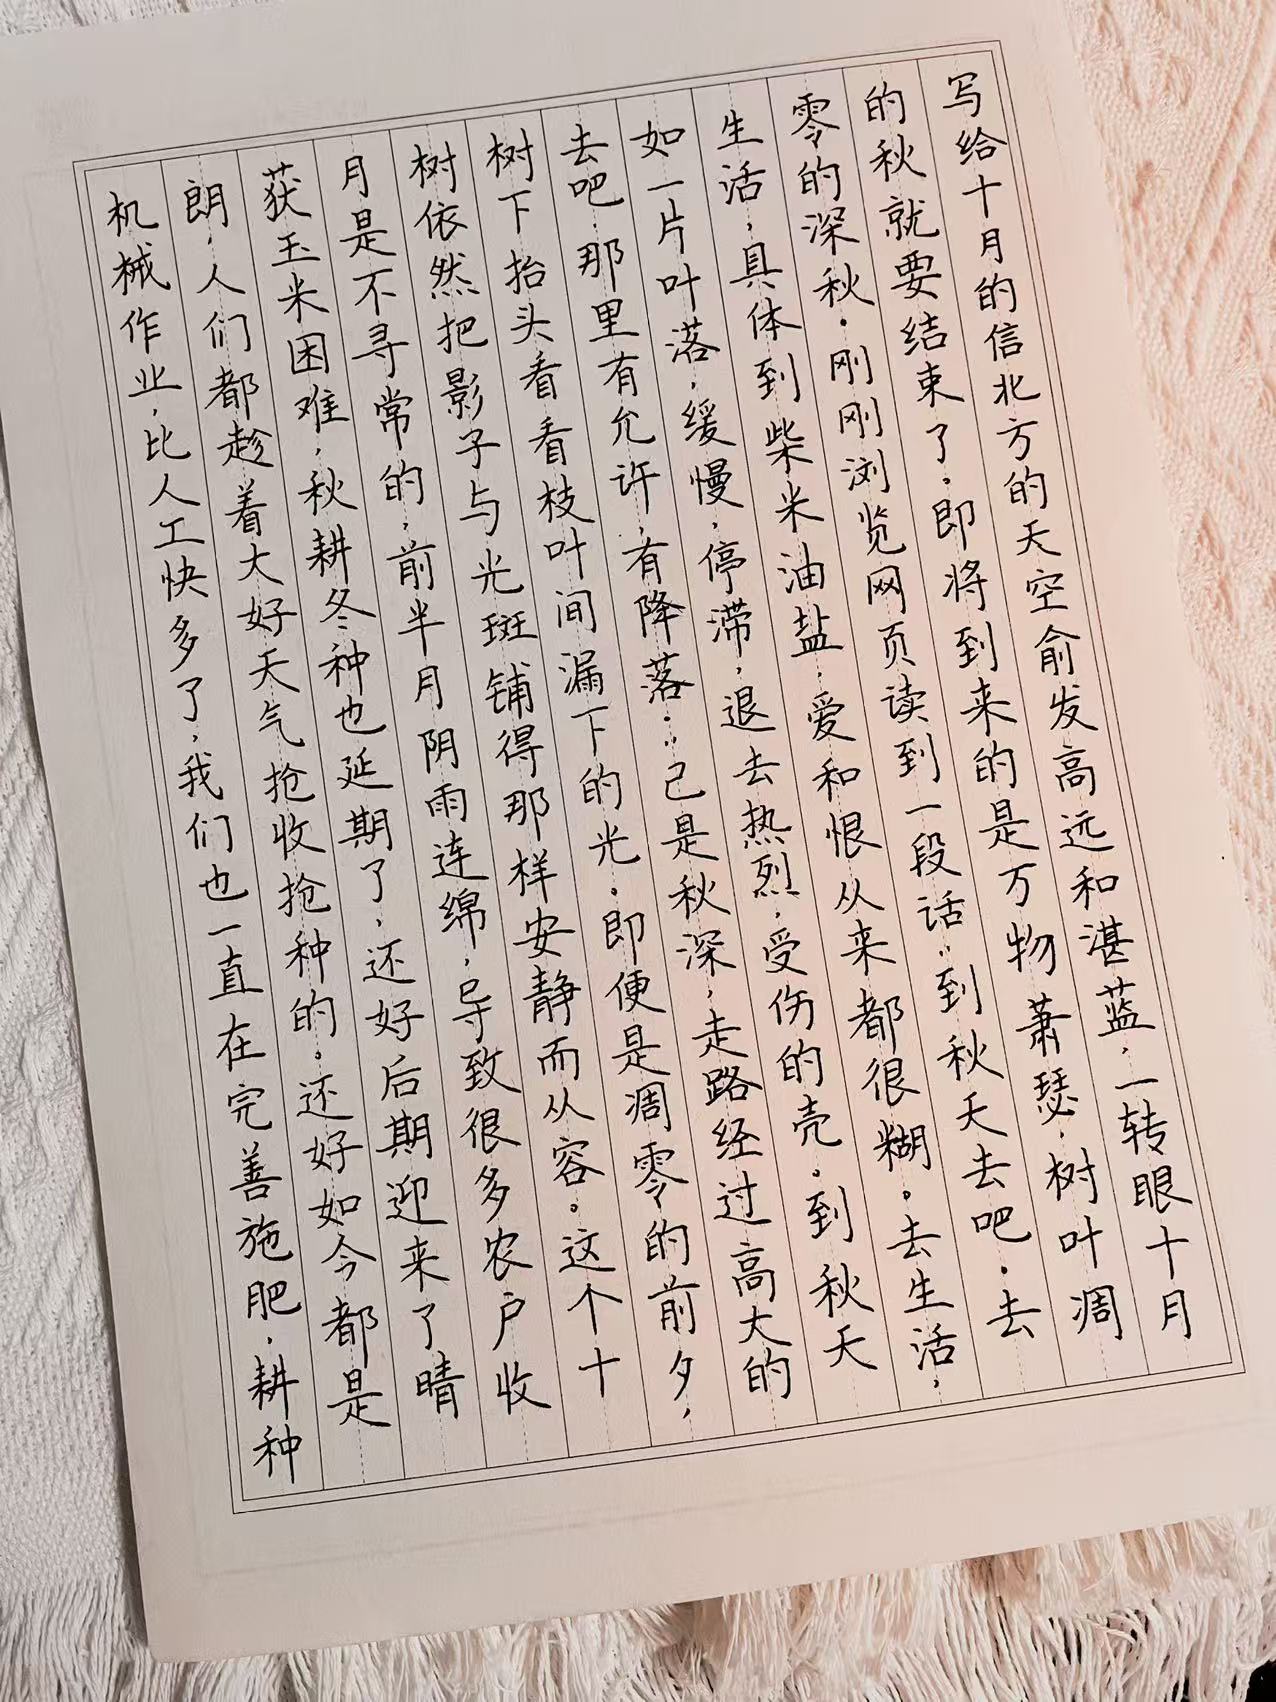 写给十月的信北方的天空俞发高远和湛蓝，一转眼十月
的秋就要结束了。即将到来的是万物萧瑟，树叶凋
零的深秋。刚刚浏览网页读到一段话：到秋天去吧。去
生活，具体到柴米油盐，爱和恨从来都很糊。去生活，
如一片叶落，缓慢，停滞，退去热烈，受伤的壳。到秋天
去吧，那里有允许，有降落。”己是秋深，走路经过高大的
树下抬头看看枝叶间漏下的光。即便是凋零的前夕，
树依然把影子与光斑铺得那样安静而从容。这个十
月是不寻常的，前半月阴雨连绵，导致很多农户收
获玉米困难，秋耕冬种也延期了，还好后期迎来了晴
朗，人们都趁着大好天气抢收抢种的。还好如今都是
机械作业，比人工快多了，我们也一直在完善施肥，耕种